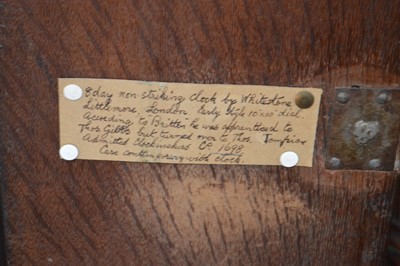 8 day non striking clock by Whitestone
Littlemore London. Early style 10"x10" dial.
According to Britten he was apprenticed to
Thos Gibbs but turned over to Thos. Tompion
Admitted Clockmakers Co 1698
Case contemporary with clock.